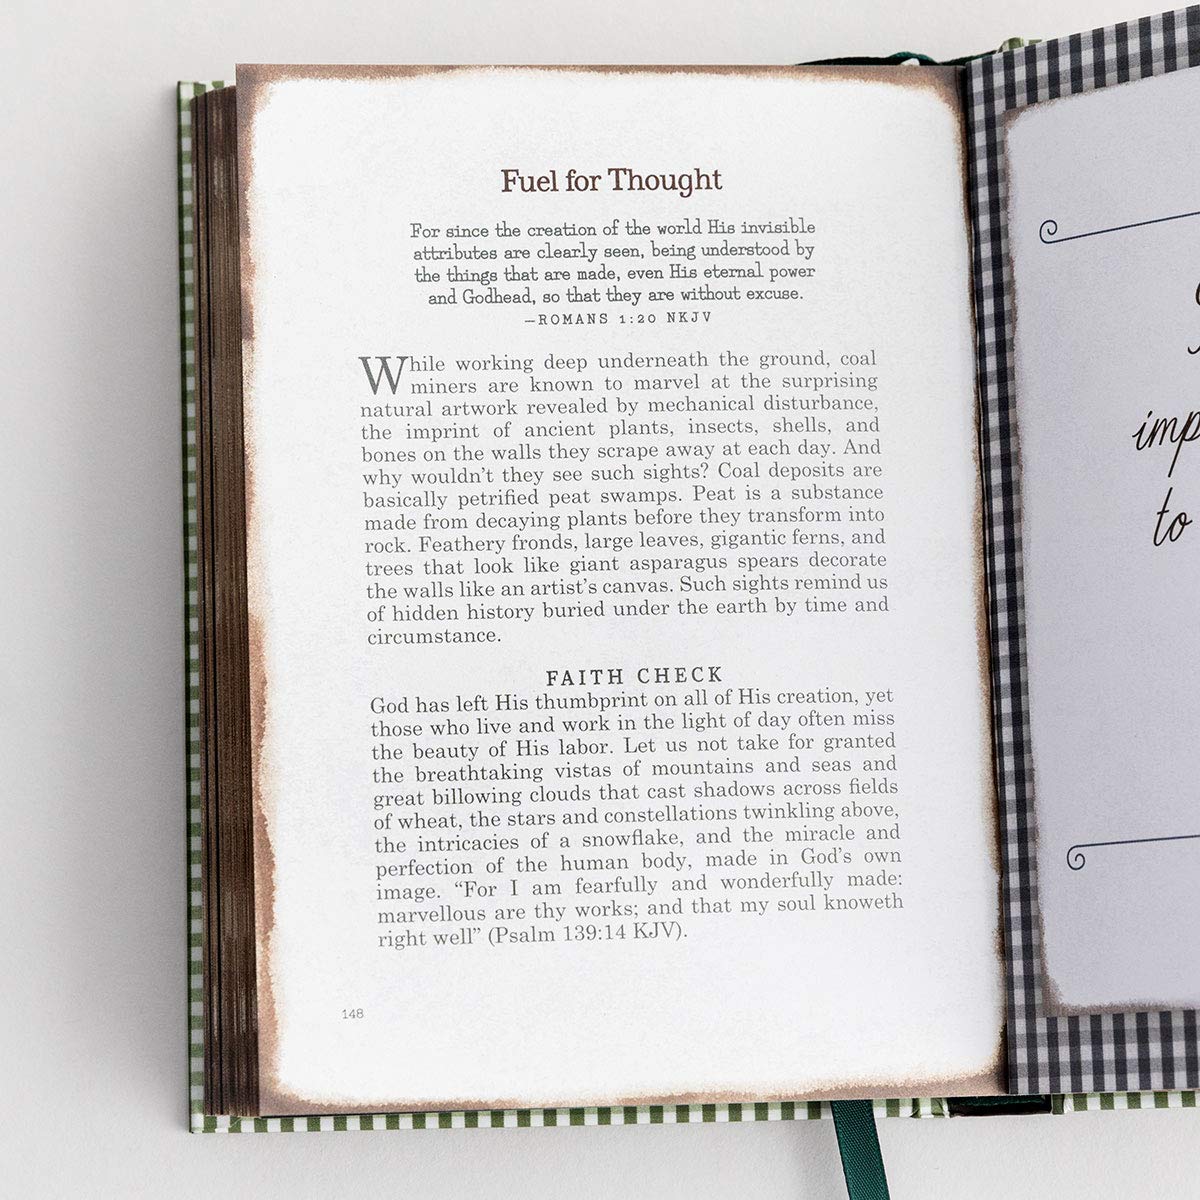 Fuel for Thought
For since the creation of the world His invisible
attributes are clearly seen, being understood by
the things that are made, even His eternal power
and Godhead, so that they are without excuse.
—ROMANS 1:20 NKJV
While working deep underneath the ground, coal
miners are known to marvel at the surprising
natural artwork revealed by mechanical disturbance,
the imprint of ancient plants, insects, shells, and
bones on the walls they scrape away at each day. And
why wouldn't they see such sights? Coal deposits are
basically petrified peat swamps. Peat is a substance
made from decaying plants before they transform into
rock. Feathery fronds, large leaves, gigantic ferns, and
trees that look like giant asparagus spears decorate
the walls like an artist's canvas. Such sights remind us
of hidden history buried under the earth by time and
circumstance.
FAITH CHECK
God has left His thumbprint on all of His creation, yet
those who live and work in the light of day often miss
the beauty of His labor. Let us not take for granted
the breathtaking vistas of mountains and seas and
great billowing clouds that cast shadows across fields
of wheat, the stars and constellations twinkling above,
the intricacies of a snowflake, and the miracle and
perfection of the human body, made in God's own
image. “For I am fearfully and wonderfully made:
marvellous are thy works; and that my soul knoweth
right well” (Psalm 139:14 KJV).
148
imp
to